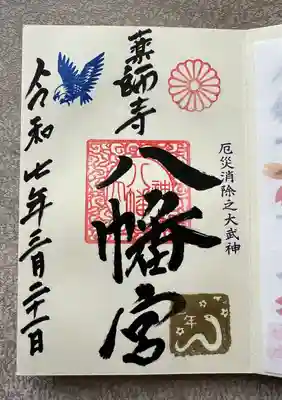 厄災消除之大武神
薬師寺
八幡宮
令和七年三月二十一日
年